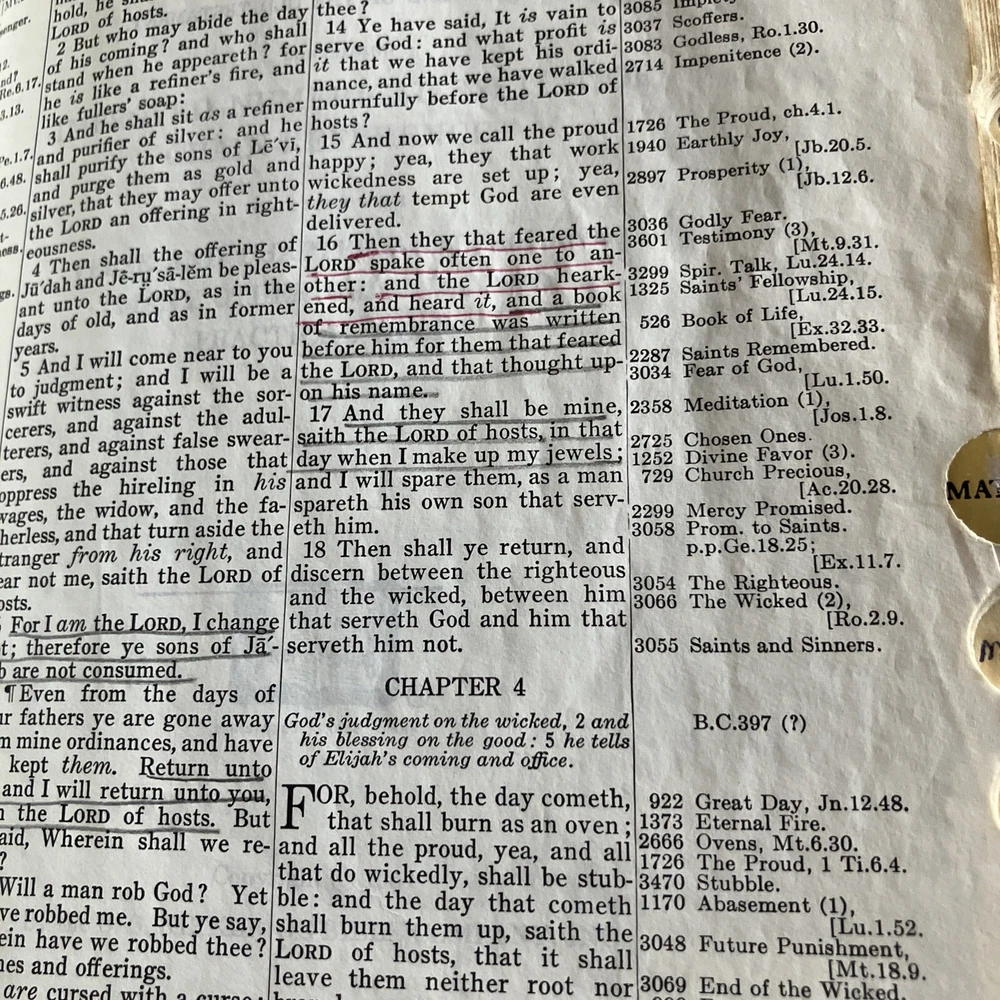 hold, he
LORD of hosts.
2 But who may abide the day
of his coming? and who shall
stand when he appeareth? for
he is like a refiner's fire, and
like fullers' soap:
3 And he shall sit as a refiner
and purifier of silver: and he
shall purify the sons of Lē´vī,
and purge them as gold and
silver, that they may offer unto
the LORD an offering in right-
eousness.
4 Then shall the offering of
Jū´dah and Jē-rụ´sā-lĕm be pleas-
ant unto the LORD, as in the
days of old, and as in former
years.
5 And I will come near to you
to judgment; and I will be a
swift witness against the sor-
cerers, and against the adul-
terers, and against false swear-
ers, and against those that
oppress the hireling in his
wages, the widow, and the fa-
herless, and that turn aside the
tranger from his right, and
ear not me, saith the LORD of
osts.
For I am the LORD, I change
t; therefore ye sons of Jā´-
b are not consumed.
¶Even from the days of
ur fathers ye are gone away
m mine ordinances, and have
kept them. Return unto
and I will return unto you,
h the LORD of hosts. But
aid, Wherein shall we re-
?
Will a man rob God? Yet
ve robbed me. But ye say,
ein have we robbed thee?
hes and offerings.
are cursed with a curse:
thee?
14 Ye have said, It is vain to
serve God: and what profit is
it that we have kept his ordi-
nance, and that we have walked
mournfully before the LORD of
hosts?
15 And now we call the proud
happy; yea, they that work
wickedness are set up; yea,
they that tempt God are even
delivered.
16 Then they that feared the
LORD spake often one to an-
other: and the LORD heark-
ened, and heard it, and a book
of remembrance was written
before him for them that feared
the LORD, and that thought up-
on his name.
17 And they shall be mine,
saith the LORD of hosts, in that
day when I make up my jewels;
and I will spare them, as a man
spareth his own son that serv-
eth him.
18 Then shall ye return, and
discern between the righteous
and the wicked, between him
that serveth God and him that
serveth him not.
CHAPTER 4
God's judgment on the wicked, 2 and
his blessing on the good: 5 he tells
of Elijah's coming and office.
FOR, behold, the day cometh,
that shall burn as an oven;
and all the proud, yea, and all
that do wickedly, shall be stub-
ble: and the day that cometh
shall burn them up, saith the
LORD of hosts, that it shall
leave them neither root nor
3085
3037 Scoffers.
3083 Godless, Ro.1.30.
2714 Impenitence (2).
1726 The Proud, ch.4.1.
1940 Earthly Joy,
[Jb.20.5.
2897 Prosperity (1),
[Jb.12.6.
3036 Godly Fear.
3601 Testimony (3),
[Mt.9.31.
3299 Spir. Talk, Lu.24.14.
1325 Saints' Fellowship,
[Lu.24.15.
526 Book of Life,
[Ex.32.33.
2287 Saints Remembered.
3034 Fear of God,
[Lu.1.50.
2358 Meditation (1),
[Jos.1.8.
2725 Chosen Ones.
1252 Divine Favor (3).
729 Church Precious,
[Ac.20.28.
2299 Mercy Promised.
3058 Prom. to Saints.
p.p.Ge.18.25;
[Ex.11.7.
3054 The Righteous.
3066 The Wicked (2),
[Ro.2.9.
3055 Saints and Sinners.
B.C.397 (?)
922 Great Day, Jn.12.48.
1373 Eternal Fire.
2666 Ovens, Mt.6.30.
1726 The Proud, 1 Ti.6.4.
3470 Stubble.
1170 Abasement (1),
[Lu.1.52.
3048 Future Punishment,
[Mt.18.9.
3069 End of the Wicked.
MAT